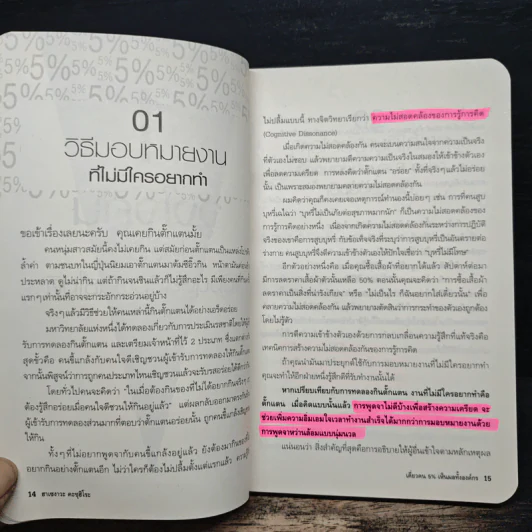 5% 5% 5% 5% 5%
01
วิธีมอบหมายงาน
ที่ไม่มีใครอยากทำ
ขอเข้าเรื่องเลยนะครับ คุณเคยกินตั๊กแตนมั้ย
คนหนุ่มสาวสมัยนี้คงไม่เคยกิน แต่สมัยก่อนตั๊กแตนเป็นแหล่ง
ล้ำค่า ตามชนบทในญี่ปุ่นนิยมเอาตั๊กแตนมาต้มซีอิ๊วกิน หน้าตามัน
ประหลาด ดูไม่น่ากิน แต่ถ้ากินจนชินแล้วก็ไม่รู้สึกอะไร มีเพียง
แรกๆ เท่านั้นที่อาจจะกระอักกระอ่วนอยู่บ้าง
จริงๆ แล้วมีวิธีช่วยให้คนเหล่านี้กินตั๊กแตนได้อย่างเอร็ดอร่อย
มหาวิทยาลัยแห่งหนึ่งได้ทดลองเกี่ยวกับการประเมินรสชาติโดยให้
รับการทดลองกินตั๊กแตน และเตรียมเจ้าหน้าที่ไว้ 2 ประเภท ซึ่ง
สุดขั้วคือ คนขี้แกล้งกับคนใจดีเชิญชวนผู้เข้ารับการทดลองให้กิน
จากนั้นพิสูจน์ว่าการถูกคนประเภทไหนเชิญชวนแล้วจะรับรสอร่อยได้
โดยทั่วไปคนจะคิดว่า "ในเมื่อต้องกินของที่ไม่ได้อยากกินจริงๆ
ต้องรู้สึกอร่อยเมื่อคนใจดีชวนให้กินอยู่แล้ว" แต่ผลกลับออกมา
ผู้เข้ารับการทดลองส่วนมากที่ตอบว่าตั๊กแตนอร่อยนั้น ถูกคนขี้แกล้ง
ให้กิน
ทั้งๆ ที่ไม่อยากพูดจากับคนขี้แกล้งอยู่แล้ว ยังต้องมากิน
อยากกินอย่างตั๊กแตนอีก ไม่ว่าใครก็ต้องไม่ปลื้มตั้งแต่แรกแล้ว
14 ฮาเซงาวะ คะซุฮิโระ
ไม่ปลื้มแบบนี้ ทางจิตวิทยาเรียกว่า ความไม่สอดคล้องของการรู้การคิด
(Cognitive Dissonance)
เมื่อเกิดความไม่สอดคล้องกัน คนจะเบนความสนใจจากความเป็นจริง
ที่ตัวเองไม่ชอบ แล้วพยายามตีความความเป็นจริงในสมองให้เข้าข้างตัวเอง
เพื่อลดความเครียด การหลงคิดว่าตั๊กแตน "อร่อย" ทั้งที่จริงๆ แล้วไม่อร่อย
นั้น เป็นเพราะสมองพยายามคลายความไม่สอดคล้องกัน
ผมคิดว่าคุณก็คงเคยเจอเหตุการณ์ทำนองนี้บ่อยๆ เช่น การที่คนสูบ
บุหรี่แน่ใจว่า "บุหรี่ไม่เป็นภัยต่อสุขภาพมากนัก" ก็เป็นความไม่สอดคล้องของ
การรู้การคิดอย่างหนึ่ง เนื่องจากเกิดความไม่สอดคล้องกันระหว่างการปฏิบัติ
จริงของเขาคือการสูบบุหรี่ กับข้อเท็จจริงที่ระบุว่าการสูบบุหรี่เป็นอันตรายต่อ
ร่างกาย คนสูบบุหรี่จึงตีความเข้าข้างตัวเองให้ปักใจเชื่อว่า "บุหรี่ไม่มีโทษ"
อีกตัวอย่างหนึ่งคือ เมื่อคุณซื้อเสื้อผ้าที่อยากได้แล้ว สัปดาห์ต่อมา
มีการลดราคาเสื้อผ้าตัวนั้นเหลือ 50% ตอนนั้นคุณจะคิดว่า "การซื้อเสื้อผ้า
ลดราคาเป็นสิ่งที่น่ารังเกียจ" หรือ "ไม่เป็นไร ก็ฉันอยากใส่เดี๋ยวนั้น" เพื่อ
คลายความไม่สอดคล้องกัน แล้วพยายามตัดสินว่าการกระทำของตัวเองถูกต้อง
โดยไม่รู้ตัว
การตีความเข้าข้างตัวเองด้วยการกลบเกลื่อนความรู้สึกที่แท้จริงคือ
เทคนิคการสร้างความไม่สอดคล้องของการรู้การคิด
ถ้าคุณนำมันมาประยุกต์ใช้กับการมอบหมายงานที่ไม่มีใครอยากทำ
คุณจะทำให้อีกฝ่ายหนึ่งรู้สึกดีที่รับทำงานนั้นได้
หากเปรียบเทียบกับการทดลองกินตั๊กแตน งานที่ไม่มีใครอยากทำคือ
ตั๊กแตน เมื่อคิดแบบนั้นแล้ว การพูดจาไม่ดีบ้างเพื่อสร้างความเครียด จะ
ช่วยเพิ่มความอิ่มเอมใจเวลาทำงานสำเร็จได้มากกว่าการมอบหมายงานด้วย
การพูดจาหว่านล้อมแบบนุ่มนวล
แน่นอนว่า สิ่งสำคัญที่สุดคือการอธิบายให้ผู้อื่นเข้าใจตามหลักเหตุผล
เคี่ยวคน 5% เห็นผลทั้งองค์กร 15